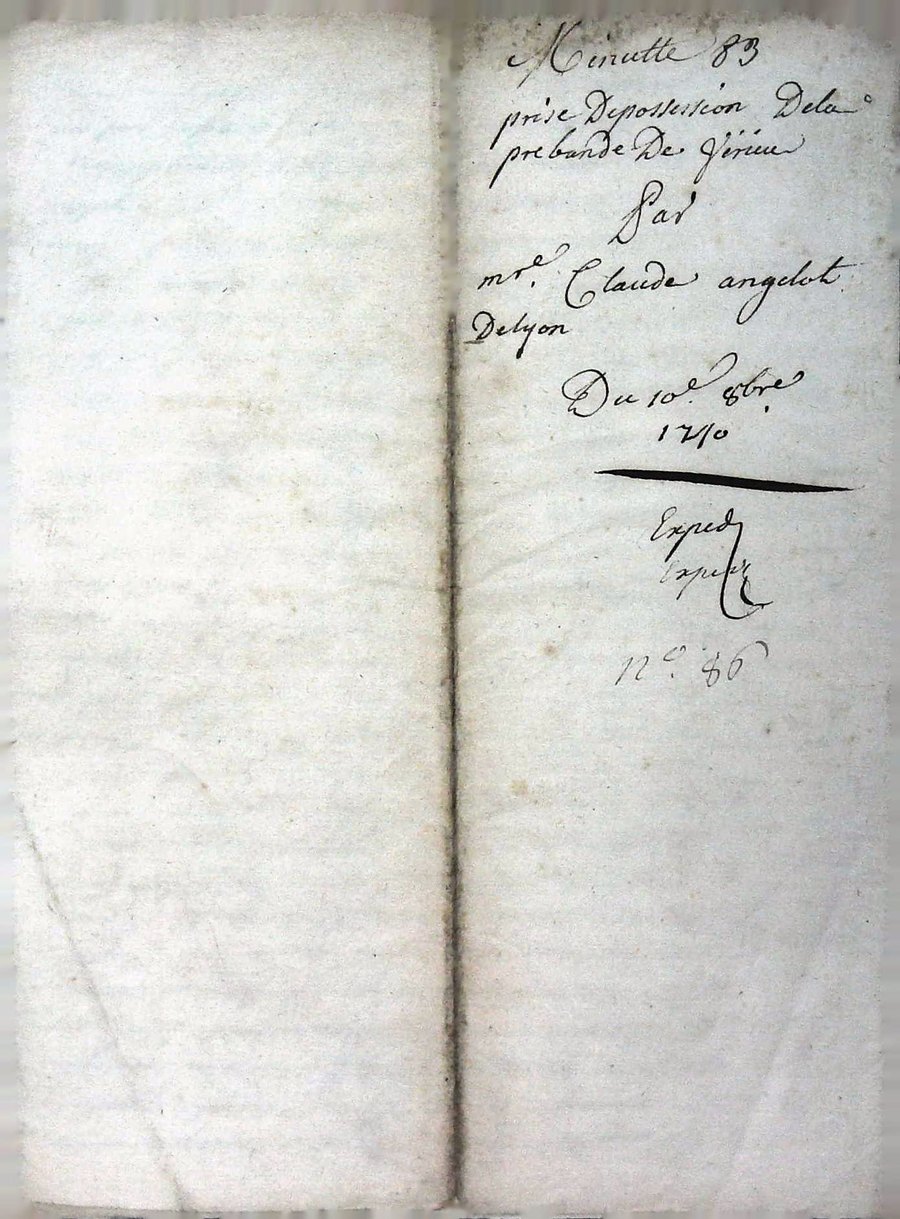 Minutte 83
prise Depossession Dela
prebande De Virieu
Par
mre. Claude angelot
Delyon
Du 10e. 8bre
1710
Exped
Exped
no. 86